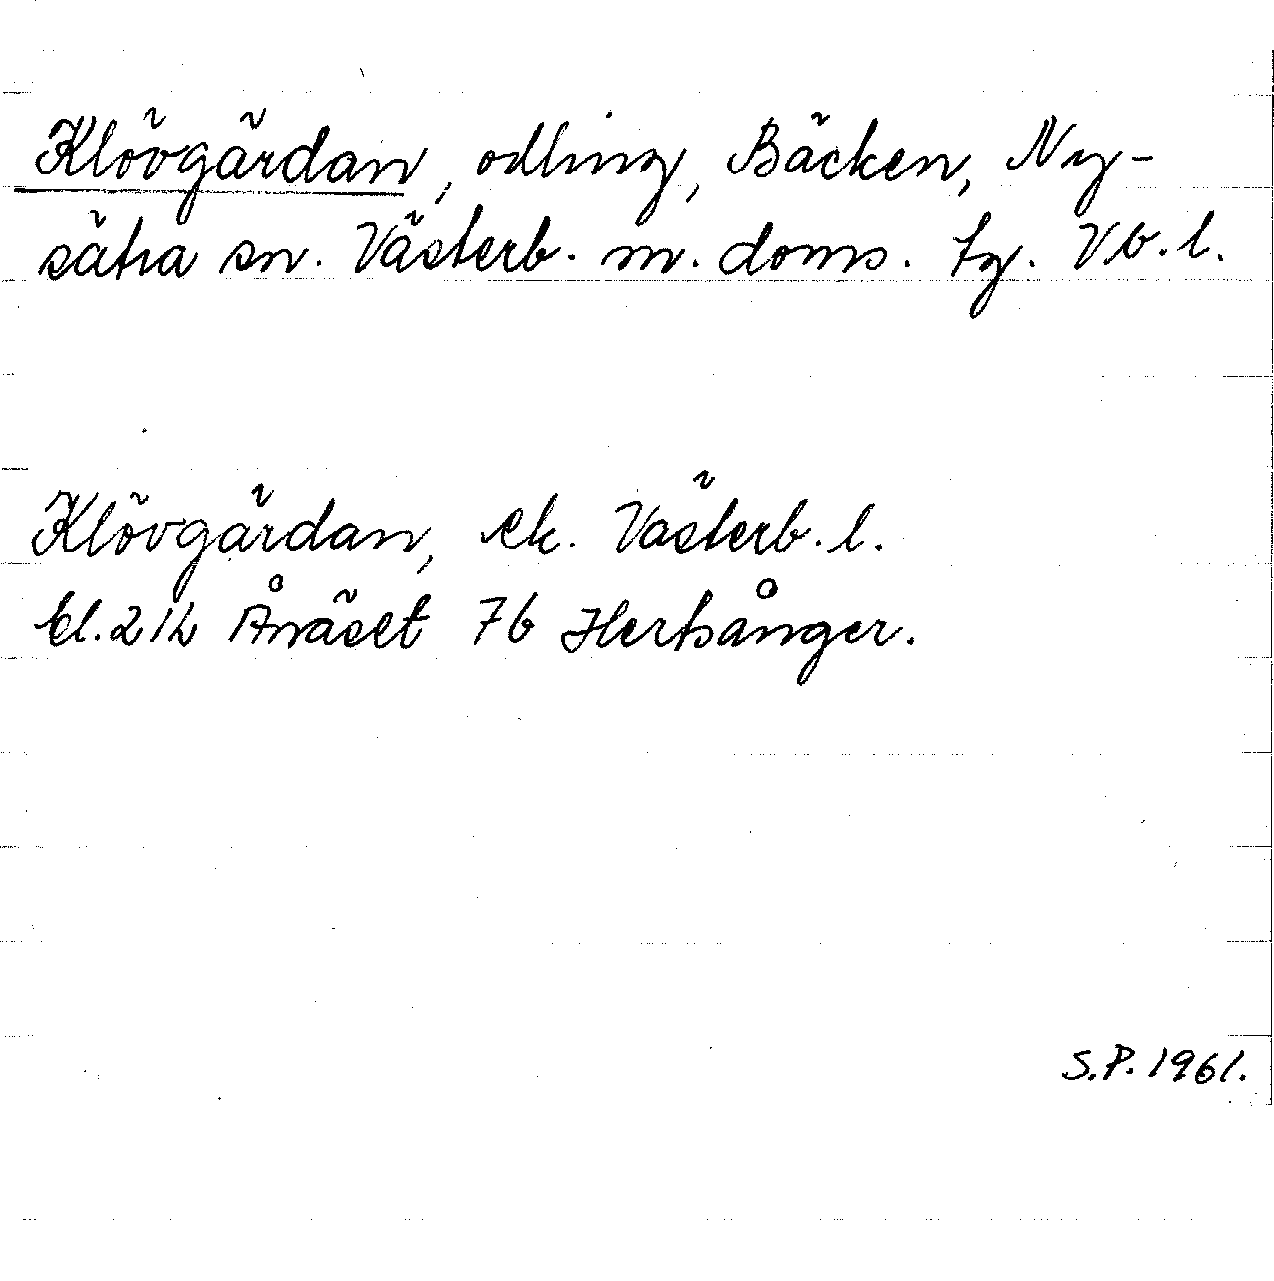 Klövgärdan, odling, Bäcken, Ny-
sätra sn. Västerb. m. doms. tg. Vb. l.
Klövgärdan, ek. Västerb. l.
bl. 21h Ånäset 7b Hertsånger.
S.P. 1961.